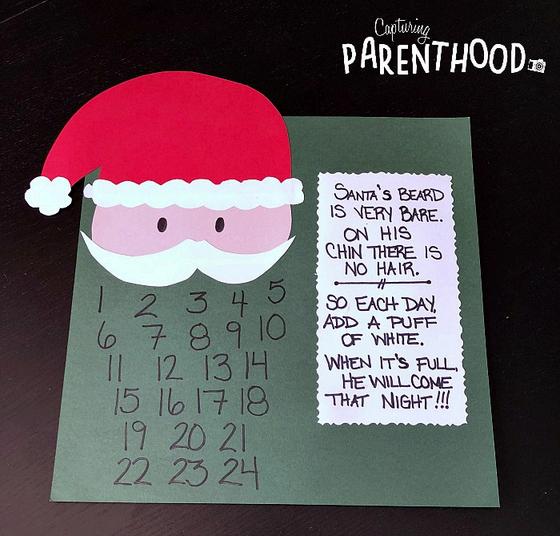 Capturing
PARENTHOOD
1 2 3 4 5
6 7 8 9 10
11 12 13 14
15 16 17 18
19 20 21
22 23 24
SANTA'S BEARD
IS VERY BARE.
ON HIS
CHIN THERE IS
NO HAIR.
SO EACH DAY,
ADD A PUFF
OF WHITE.
WHEN IT'S FULL,
HE WILL COME
THAT NIGHT!!!